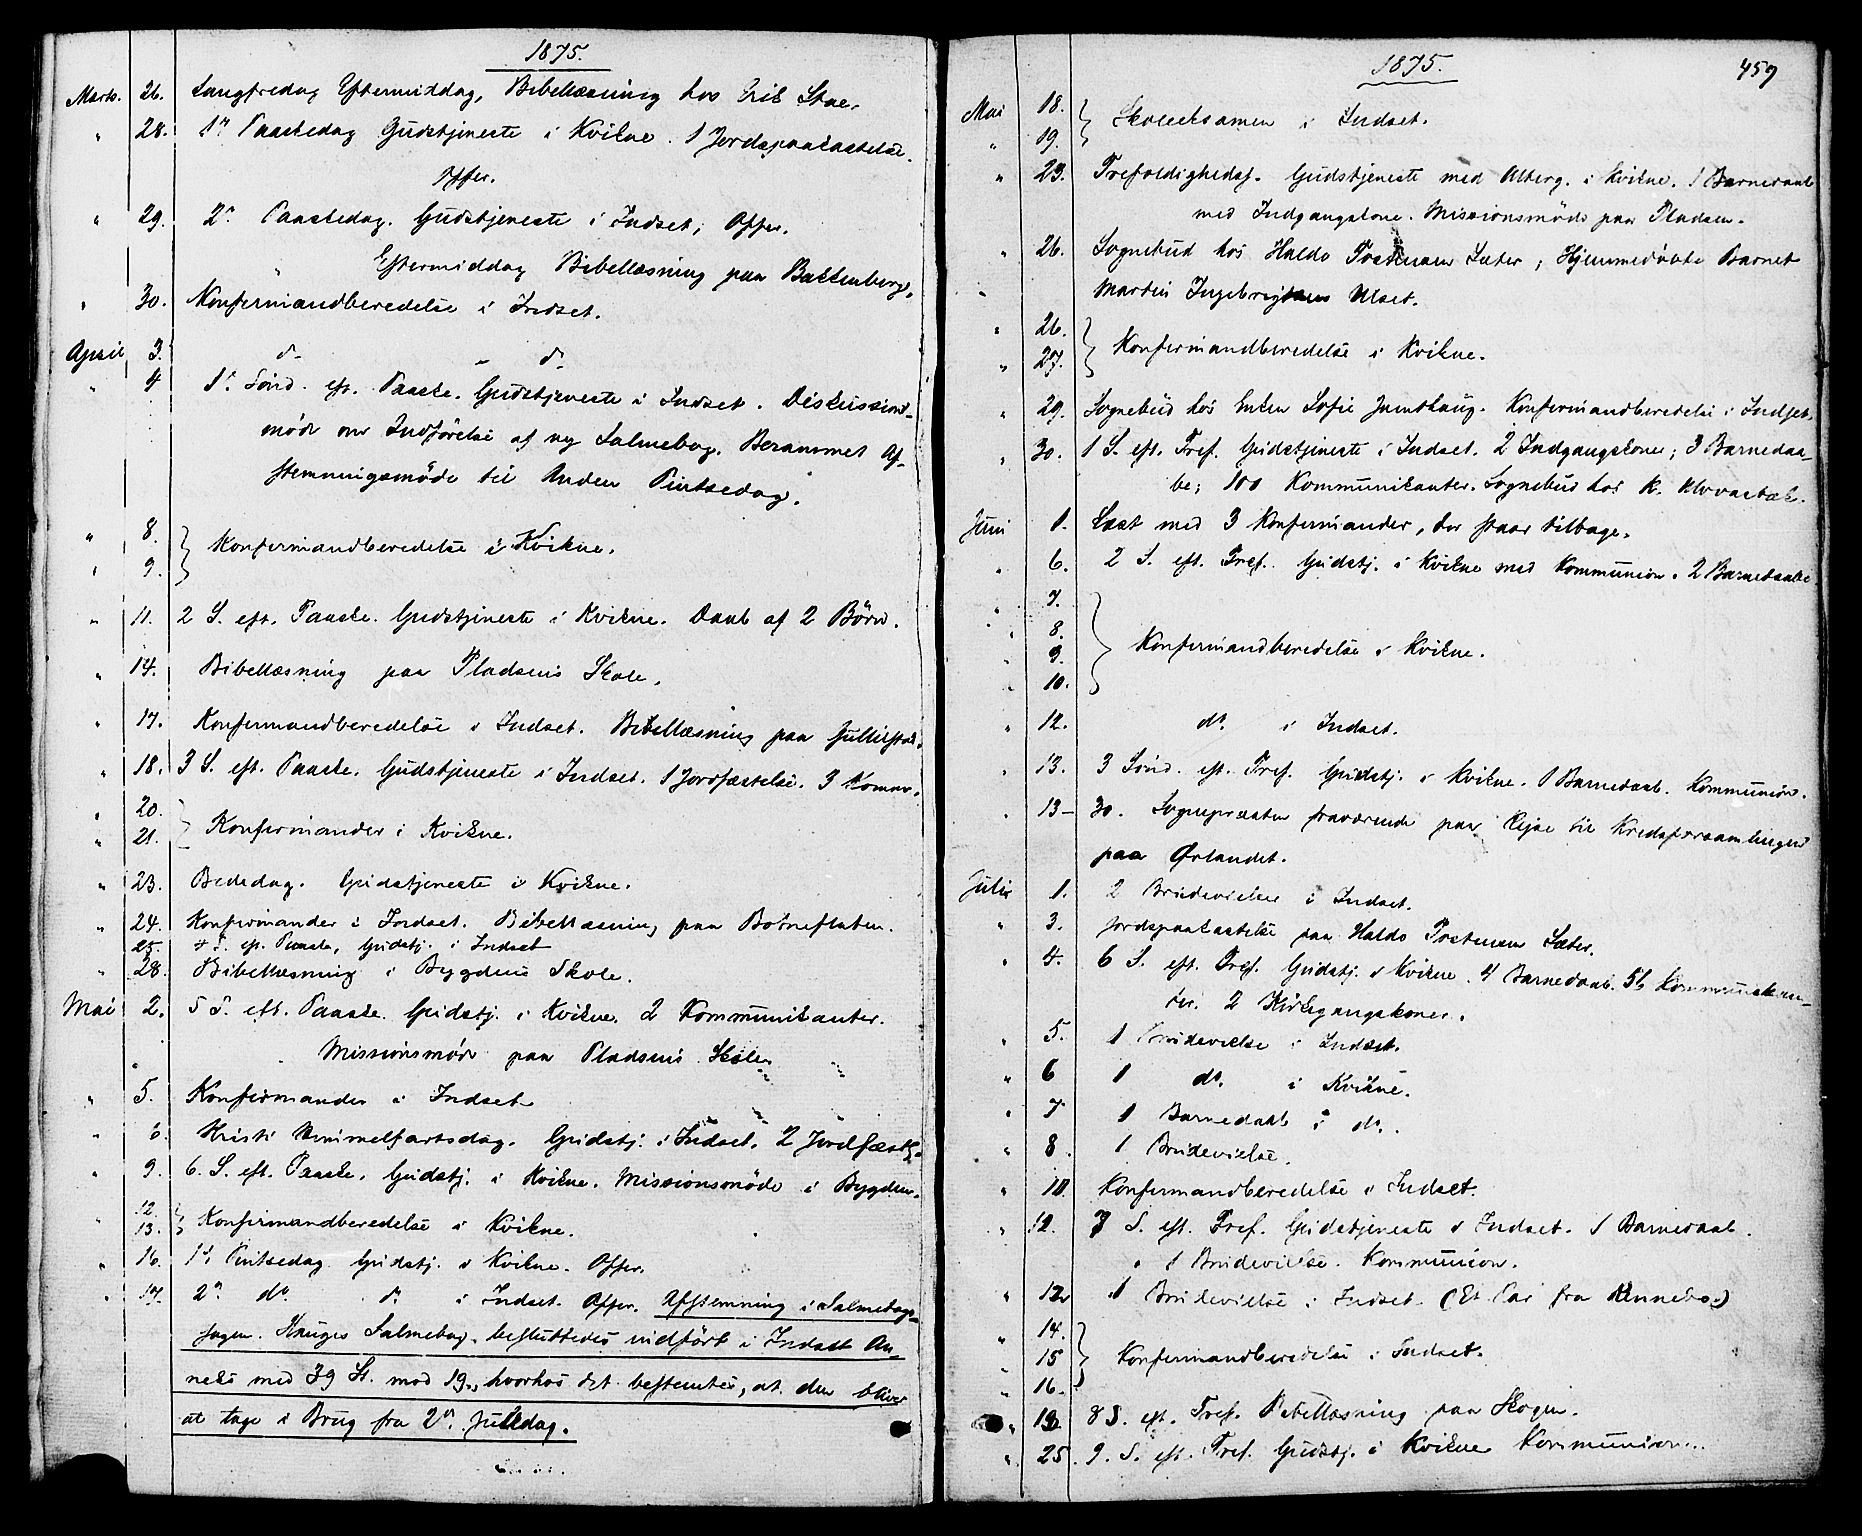 1875.
Marts. 26. Langfredag Eftermiddag, Bibellæsning hos Erik Stae.
" 28. 1ste Paaskedag Gudstjeneste i Kvikne. 1 Jordspaakastelse.
Offer.
" 29. 2n Paaskedag. Gudstjeneste i Indset, Offer.
" Eftermiddag Bibellæsning paa Bakkenberg.
" 30. Konfermandberedelse i Indset.
April 3. do - do
" 4 1s Sønd. eft. Paaske. Gudstjeneste i Indset. Diskussions-
møde om Indførelse af ny Salmebog. Berammet Af-
stemningsmøde til Anden Pintsedag.
" 8.
" 9. } Konfermandberedelse i Kvikne.
" 11. 2 S. eft. Paaske. Gudstjeneste i Kvikne. Daab af 2 Börn.
" 14. Bibellæsning paa Pladsens Skole.
" 17. Konfermandberedelse i Indset. Bibellæsning paa
" 18. 3 S. eft. Paaske. Gudstjeneste i Indset. 1 Jordfæstelse. 3 Komm.
" 20.
" 21. } Konfermander i Kvikne.
" 23. Bededag. Gudstjeneste i Kvikne.
" 24. Konfermander i Indset. Bibellæsning paa Botneflaten.
25. 4 S. eft. Paaske, Gudstj. i Indset
" 28. Bibellæsning i Bygdens Skole.
Mai 2. 5 S. eft. Paaske. Gudstj. i Kvikne. 2 Kommunikanter.
" Missionsmøde paa Pladsens Skole.
" 5. Konfermander i Indset
" 6. Kristi Himmelfartsdag. Gudstj. i Indset. 2 Jordfæst.
" 9. 6. S. eft. Paaske. Gudstj. i Kvikne. Missionsmöde i Bygden.
12.
" 13. } Konfermandberedelse i Kvikne.
" 16. 1s Pintsedag Gudstj. i Kvikne. Offer.
" 17. 2n do. do i Indset. Offer. Afstemning i Salmebogs-
sagen. Hauges Salmebog besluttedes indført i Indset An-
neks med 39 St. mod 19, hvorhos det bestemtes, at den bliver
at tage i Brug fra 2n Juledag.
1875. 459
Mai 18.
" 19. } Skoleeksamen i Indset.
" 23. Trefoldighedsf. Gudstjeneste med Alterg. i Kvikne. 1 Barnedaab
med Indgangskone. Missionsmöde paa Pladsen.
" 26. Sognebud hos Haldo Sæter; Hjemmedøbte Barnet
Martin Ingebrigtsen Ulset.
" 26.
" 27. } Konfermandberedelse i Kvikne.
" 29. Sognebud hos Enken Sofie. Konfermandberedelse i Indset.
" 30. 1 S. eft. Tref. Gudstjeneste i Indset. 2 Indgangskoner; 3 Barnedaa-
be; 100 Kommunikanter. Sognebud hos K.
Juni 1. Læst med 3 Konfermander, der staar tilbage.
" 6. 2 S. eft. Tref. Gudstj. i Kvikne med Kommunion. 2 Barnedaabe
" 7.
" 8.
" 9.
" 10. } Konfermandberedelse i Kvikne.
" 12. do. i Indset.
" 13. 3 Sönd. eft. Tref. Gudstj. i Kvikne. 1 Barnedaab. Kommunion.
" 13 - 30. Sognepræsten fraværende paa Rejse til Kredsforsamlingen
paa Ørlandet.
Juli 1. 2 Brudevielser i Indset.
" 3. Jordspaakastelse paa Haldo Sæter.
" 4. 6 S. eft. Tref. Gudstj. i Kvikne. 4 Barnedaab. 56 Kommunikan-
ter. 2 Kirkegangskoner.
" 5. 1 Brudevielse i Indset.
" 6 1 do. i Kvikne.
" 7 1 Barnedaab i do.
" 8. 1 Brudevielse.
" 10 Konfermandberedelse i Indset.
" 12. 7 S. eft. Tref. Gudstjeneste i Indset. 1 Barnedaab.
" 1 Brudevielse. Kommunion.
" 12 1 Brudevielse i Indset. (Et Par fra Rennebo.)
" 14.
" 15
" 16. } Konfermandberedelse i Indset.
" 8 S. eft. Tref. Bibellæsning paa Skogen.
" 25. 9. S. eft. Tref. Gudstj. i Kvikne Kommunion.